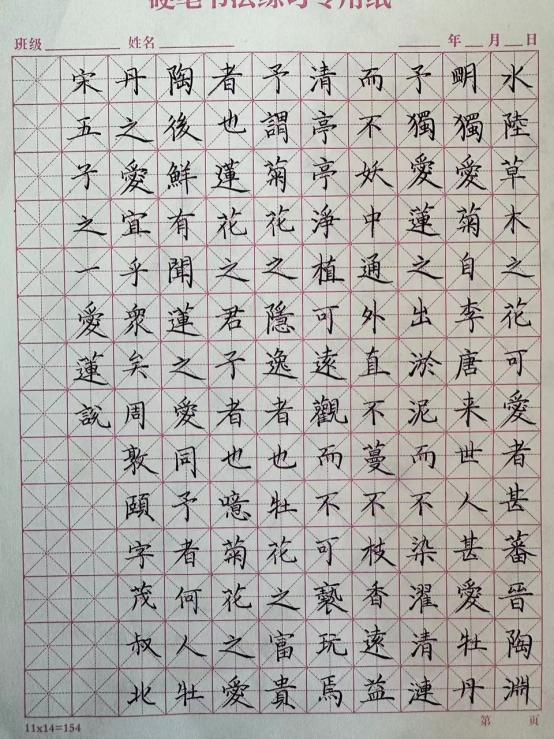 硬笔书法练习专用纸
班级 姓名 年 月 日
水陸草木之花可愛者甚蕃晉陶淵
眀獨愛菊自李唐来世人甚愛牡丹
予獨愛蓮之出淤泥而不染濯清漣
而不妖中通外直不蔓不枝香遠益
清亭亭淨植可遠觀而不可褻玩焉
予謂菊花之隱逸者也牡花之富貴
者也蓮花之君子者也噫菊花之愛
陶後鮮有聞蓮之愛同予者何人牡
丹之愛宜乎衆矣周敦頤字茂叔北
宋五子之一愛蓮說
11x14=154
第 页